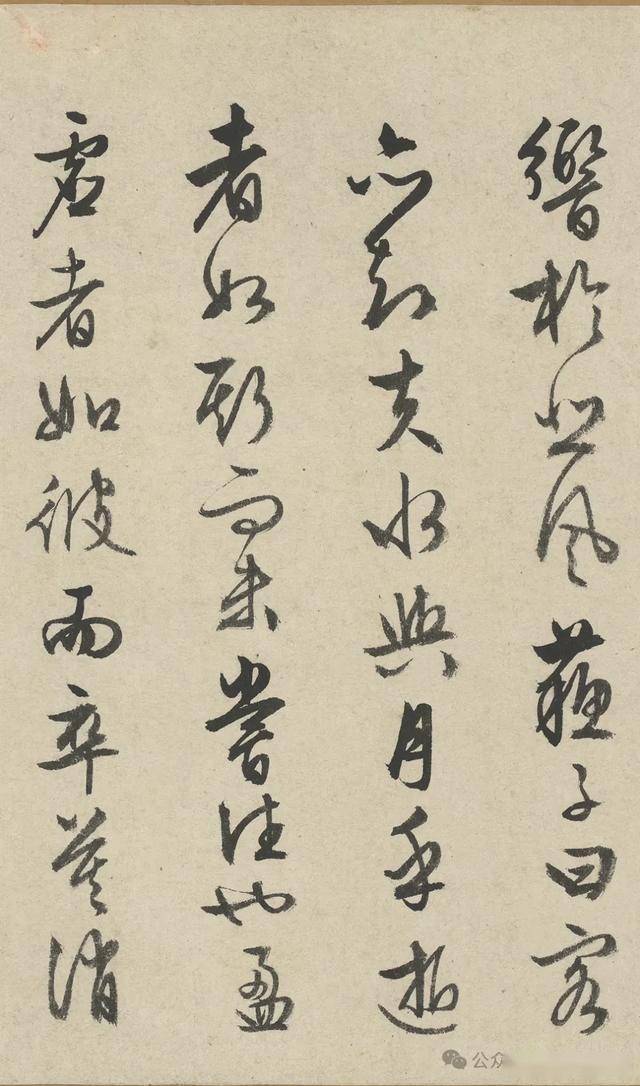 響於悲風蘇子曰客
亦知夫水與月乎逝
者如斯而未嘗往也盈
虛者如彼而卒莫消
公众